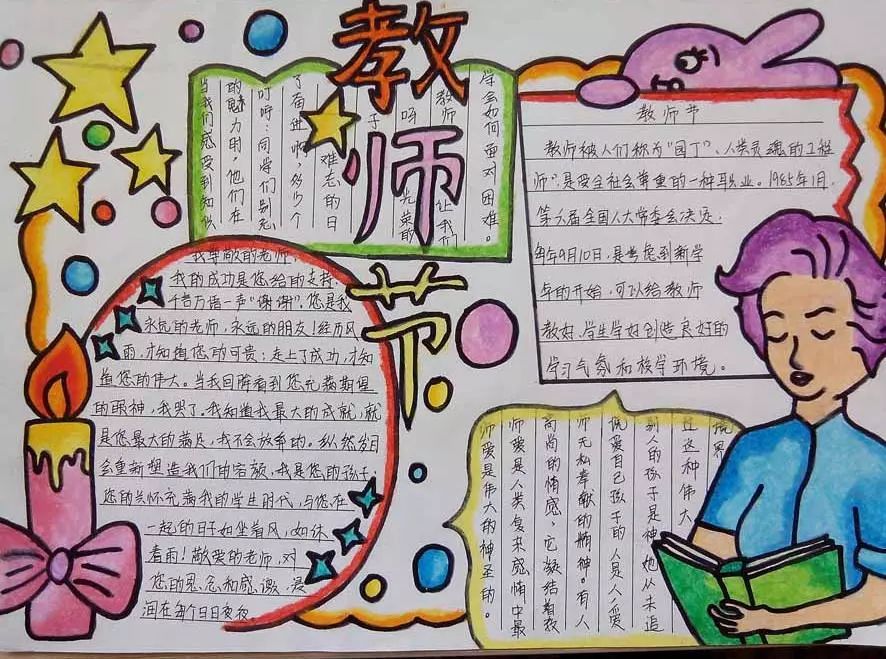 教师节
学会如何面对困难。
让我们
教师
光荣的
呀
子
难忘的日
了奋进啊,多少个
叮咛:同学们别忘
的魅力时,他们在
当我们感受到知识
教师节
教师被人们称为"园丁"、人类灵魂的工程
师",是受全社会尊重的一种职业。1985年1月,
第六届全国人大常委会决定,
每年9月10日,是考虑到新学
年的开始,可以给教师
教好、学生学好创造良好的
学习气氛和校学环境。
我尊敬的老师
我的成功是您给的支持,
千言万语一声"谢谢"。您是我
永远的老师,永远的朋友!经历风
雨,才知道您的可贵;走上了成功,才知
道您的伟大。当我回眸看到您充满期望
的眼神,我哭了,我知道我最大的成就,就
是您最大的满足,我不会放弃的。纵然岁月
会重新塑造我们的容颜,我是您的孩子;
您的关怀充满我的学生时代,与您在
一起的日子如坐着风,如沐
着雨!敬爱的老师,对
您的思念和感激,浸
润在每个日日夜夜
境界
过这种伟大
别人的孩子是神,她从未追
说爱自己孩子的人是人,爱
师无私奉献的精神。有人
高尚的情感,它凝结着教
师爱是人类复杂感情中最
师爱是伟大的神圣的。